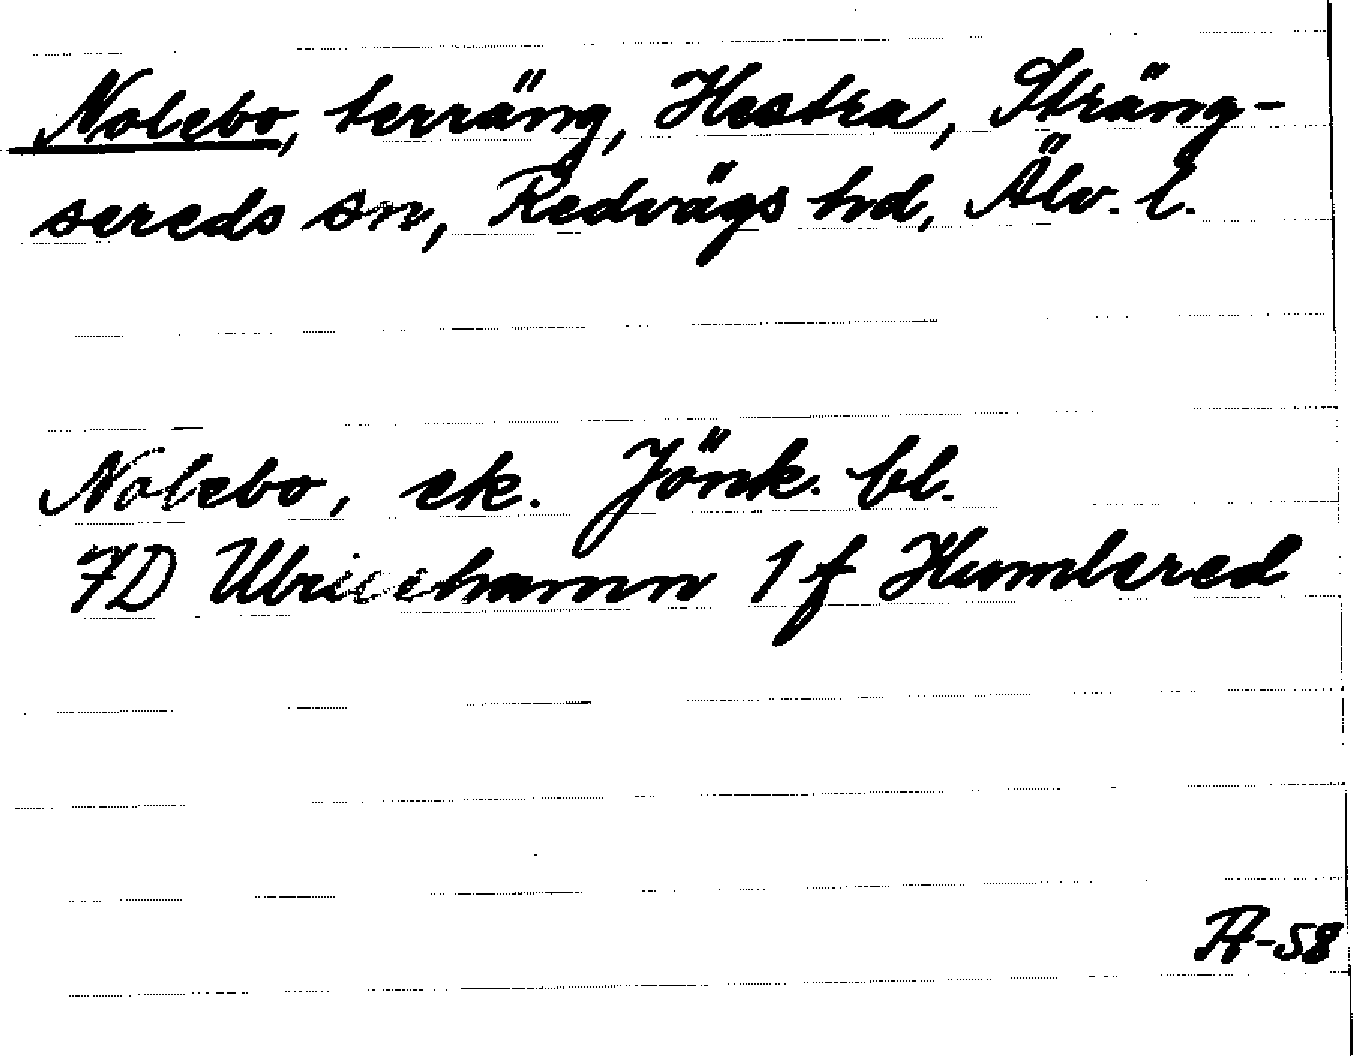 Nolebo, terräng, Hestra, Sträng-
sereds sn, Redvägs hd, Älv. l.
Nolebo, ek. Jönk. bl.
7D Ulricehamn 1 f Humlered
-58